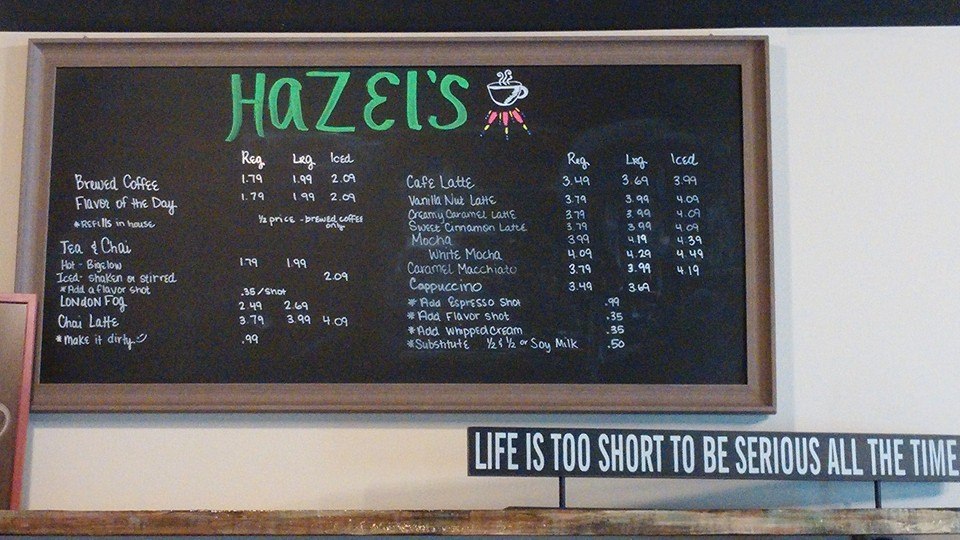 HAZEL'S
Reg. Lrg. Iced
Brewed Coffee 1.79 1.99 2.09
Flavor of the Day 1.79 1.99 2.09
*REFILLS in house ½ price - brewed coffee only
Tea & Chai
Hot - Bigelow 1.79 1.99
Iced - shaken or stirred 2.09
*Add a flavor shot .35/shot
LONDON FOG 2.49 2.69
Chai Latte 3.79 3.99 4.09
*make it dirty.. .99
Reg. Lrg. Iced
Cafe Latte 3.49 3.69 3.99
Vanilla Nut Latte 3.79 3.99 4.09
Creamy Caramel Latte 3.79 3.99 4.09
Sweet Cinnamon Latte 3.79 3.99 4.09
Mocha 3.99 4.19 4.39
White Mocha 4.09 4.29 4.49
Caramel Macchiato 3.79 3.99 4.19
Cappuccino 3.49 3.69
*Add Espresso Shot .99
*Add Flavor Shot .35
*Add Whipped Cream .35
*Substitute ½ & ½ or Soy Milk .50
LIFE IS TOO SHORT TO BE SERIOUS ALL THE TIME